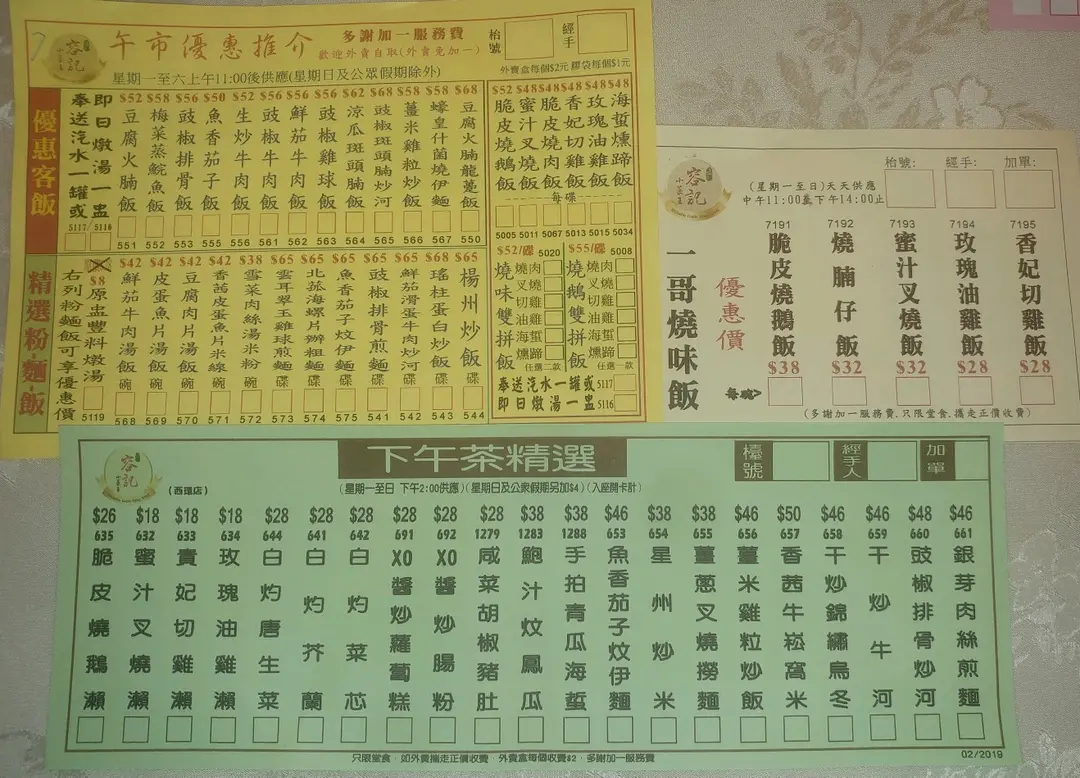 容記
小菜王
午市優惠推介
多謝加一服務費
歡迎外賣自取(外賣免加一)
枱號
經手
星期一至六上午11:00後供應(星期日及公眾假期除外)
外賣盒每個$2元 膠袋每個$1元
優惠客飯
即日燉湯一盅
奉送汽水一罐或
5117/5116
$52 豆腐火腩飯 551
$58 梅菜蒸鯇魚飯 552
$56 豉椒排骨飯 553
$50 魚香茄子飯 555
$52 生炒牛肉飯 556
$56 豉椒牛肉飯 561
$56 鮮茄牛肉飯 562
$56 豉椒雞球飯 563
$62 涼瓜斑頭腩飯 564
$68 豉椒斑頭腩炒河 565
$58 薑米雞粒炒飯 566
$58 蠔皇什菌燒伊麵 567
$68 豆腐火腩龍躉飯 550
$52 脆皮燒鵝飯 5005
$48 蜜汁叉燒飯 5011
$48 脆皮燒肉飯 5067
$48 香妃切雞飯 5013
$48 玫瑰油雞飯 5015
$48 海蜇燻蹄飯 5034
每碟
精選粉·麵·飯
右列粉麵飯可享優惠價
$8原盅豐料燉湯
5119
$42 鮮茄牛肉湯飯 碗 568
$42 皮蛋魚片湯飯 碗 569
$42 豆腐肉片湯飯 碗 570
$42 香茜皮蛋魚片米線 碗 571
$38 雪菜肉絲湯米粉 碗 572
$65 雲耳翠玉雞球煎麵 碟 573
$65 北菰海螺片辦粗麵 碟 574
$65 魚香茄子炆伊麵 碟 575
$65 豉椒排骨煎麵 碟 541
$65 鮮茄滑蛋牛肉炒河 碟 542
$68 瑤柱蛋白炒飯 碟 543
$65 楊州炒飯 碟 544
$52/碟 5020
燒味雙拼飯
燒肉
叉燒
切雞
油雞
海蜇
燻蹄
任選二款
$55/碟 5008
燒鵝雙拼飯
燒肉
叉燒
切雞
油雞
海蜇
燻蹄
任選一款
奉送汽水一罐或 5117
即日燉湯一盅 5116
容記
小菜王
(星期一至日)天天供應
中午11:00至下午14:00止
枱號:
經手:
加單:
一哥燒味飯
優惠價
7191 脆皮燒鵝飯 $38
7192 燒腩仔飯 $32
7193 蜜汁叉燒飯 $32
7194 玫瑰油雞飯 $28
7195 香妃切雞飯 $28
每碗>
(多謝加一服務費.只限堂食.攜走正價收費)
容記
小菜王
(西環店)
下午茶精選
(星期一至日 下午2:00供應)(星期日及公眾假期另加$4)(入座開卡計)
檯號
經手人
加單
$26 635 脆皮燒鵝瀨
$18 632 蜜汁叉燒瀨
$18 633 貴妃切雞瀨
$18 634 玫瑰油雞瀨
$28 644 白灼唐生菜
$28 641 白灼芥蘭
$28 642 白灼菜芯
$28 691 XO醬炒蘿蔔糕
$28 692 XO醬炒腸粉
$28 1279 咸菜胡椒豬肚
$38 1283 鮑汁炆鳳瓜
$38 1288 手拍青瓜海蜇
$46 653 魚香茄子炆伊麵
$38 654 星州炒米
$38 655 薑蔥叉燒撈麵
$46 656 薑米雞粒炒飯
$50 657 香茜牛崧窩米
$46 658 干炒錦繡烏冬
$46 659 干炒牛河
$48 660 豉椒排骨炒河
$46 661 銀芽肉絲煎麵
只限堂食，如外賣攜走正價收費，外賣盒每個收費$2，多謝加一服務費
02/2019